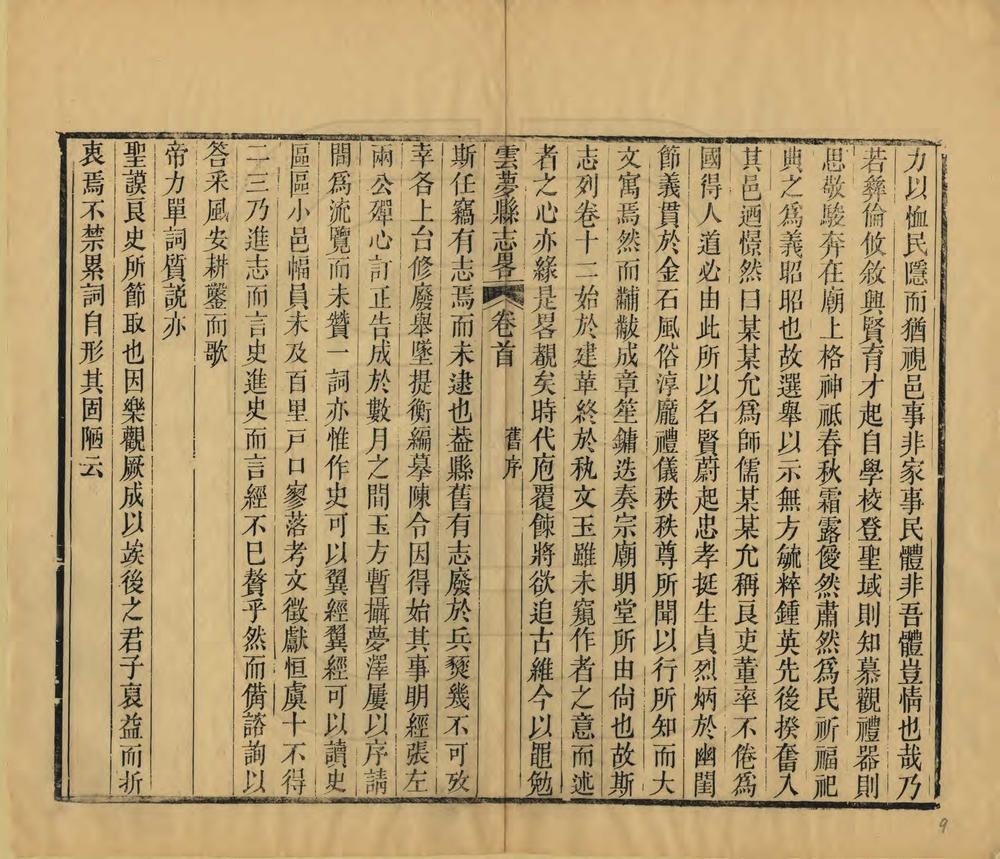 力以恤民隱而猶視邑事非家事民體非吾體豈情也哉乃
若彝倫攸敘興賢育才起自學校登聖域則知慕觀禮器則
思敬駿奔在廟上格神祇春秋霜露僾然肅然爲民祈福祀
典之爲義昭昭也故選舉以示無方毓粹鍾英先後揆奮入
其邑迺憬然曰某某允爲師儒某某允稱良吏董率不倦爲
國得人道必由此所以名賢蔚起忠孝挺生貞烈炳於幽閨
節義貫於金石風俗淳龐禮儀秩秩尊所聞以行所知而大
文寓焉然而黼黻成章笙鏞迭奏宗廟明堂所由尙也故斯
志列卷十二始於建革終於秇文玉雖未窺作者之意而述
者之心亦緣是畧覩矣時代庖覆餗將欲追古維今以黽勉
雲夢縣志畧 卷首 舊序
斯任竊有志焉而未逮也葢縣舊有志廢於兵燹幾不可攷
幸各上台修廢舉墜提衡編摹陳令因得始其事明經張左
兩公殫心訂正告成於數月之間玉方暫攝夢澤屢以序請
閒爲流覽而未贊一詞亦惟作史可以翼經翼經可以讀史
區區小邑幅員未及百里戸口寥落考文徵獻恒虞十不得
二三乃進志而言史進史而言經不巳贅乎然而僃諮詢以
答采風安耕鑿而歌
帝力單詞質説亦
聖謨良史所節取也因樂觀厥成以竢後之君子裒益而折
衷焉不禁累詞自形其固陋云
9